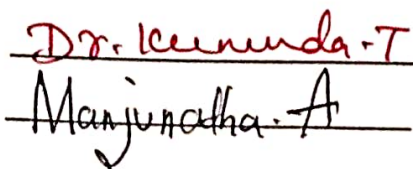 Dr. Kumuda. T
Manjunatha. A